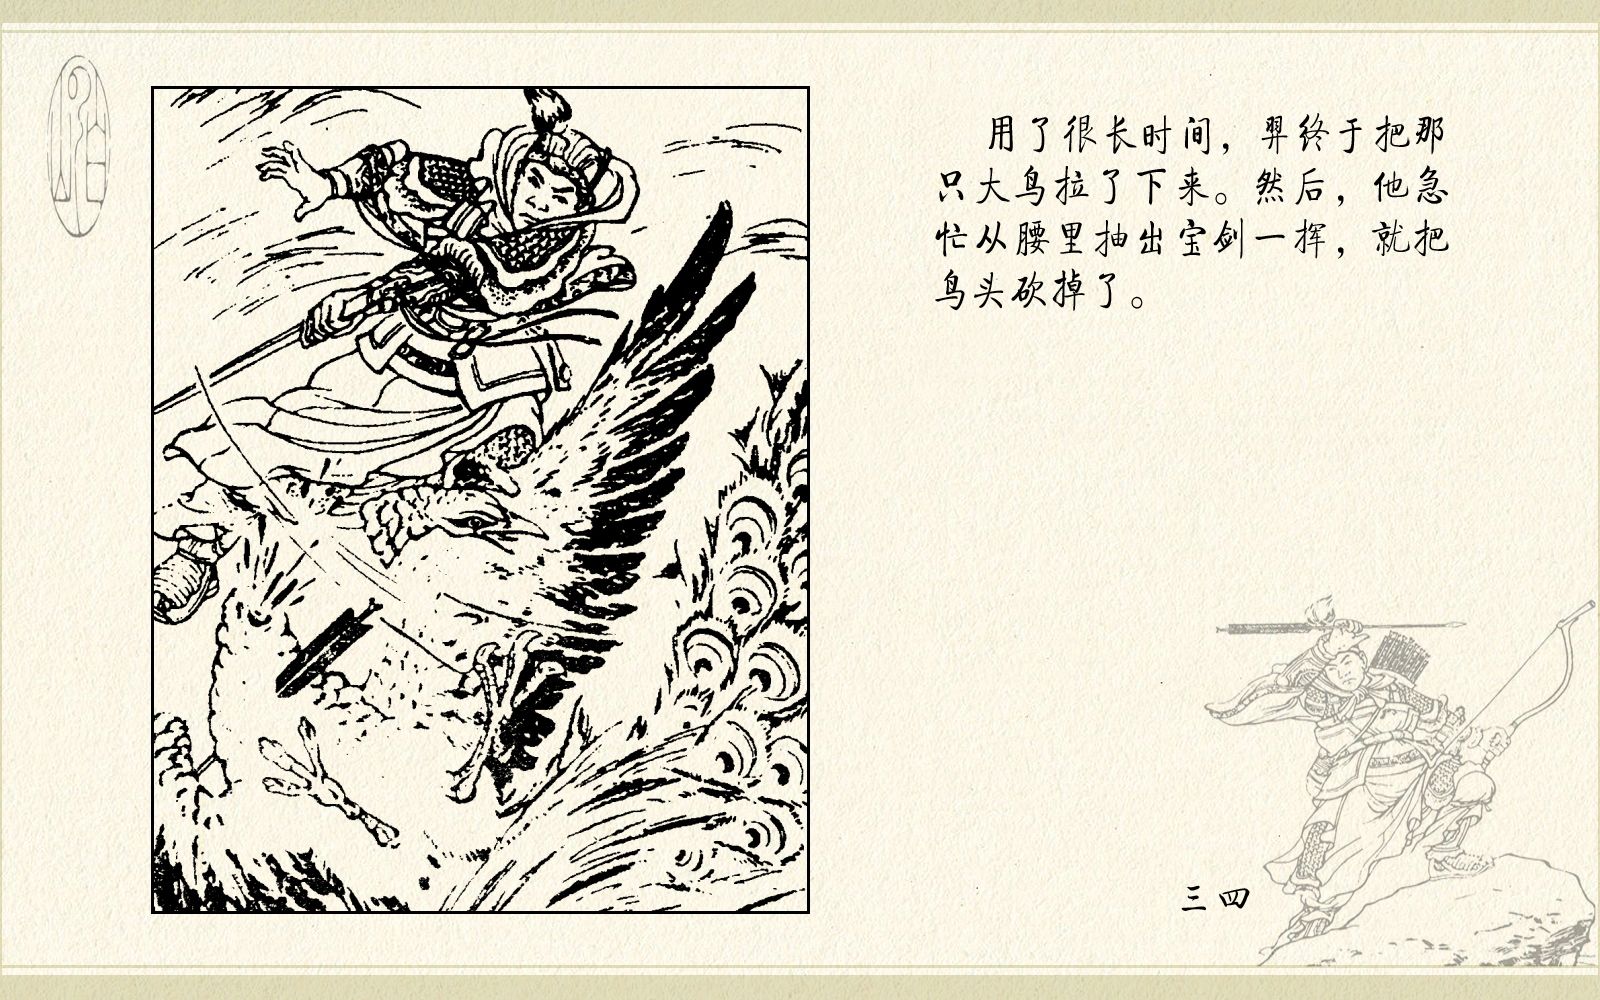 用了很长时间，羿终于把那
只大鸟拉了下来。然后，他急
忙从腰里抽出宝剑一挥，就把
鸟头砍掉了。
三四